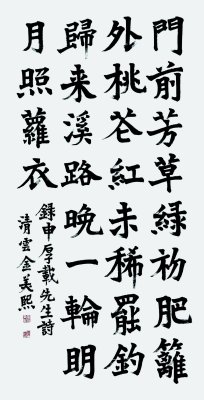 門前芳草綠初肥籬
外桃花紅未稀罷釣
歸来溪路晚一輪明
月照蘿衣
錄申厚載先生詩
清雲金美熙